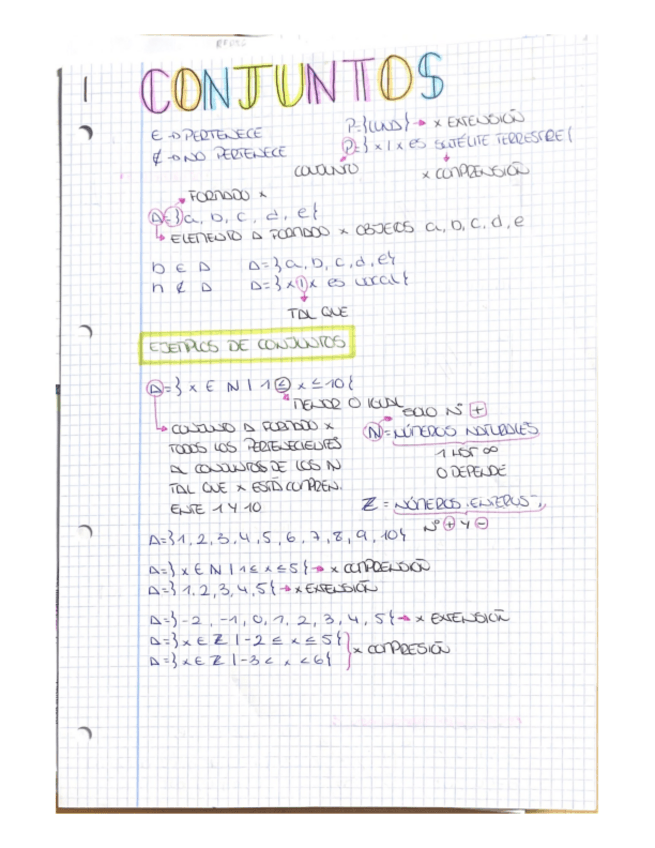 CONJUNTOS
∈ → PERTENECE
∉ → NO PERTENECE
P=}LUNA{ → x EXTENSIÓN
P=}x|x ES SATÉLITE TERRESTRE{
CONJUNTO
x COMPRENSIÓN
FORMADO x
A=}a, b, c, d, e{
ELEMENTO A FORMADO x OBJETOS a, b, c, d, e
b ∈ A A=}a, b, c, d, e{
h ∉ A A=}x|x es vocal{
TAL QUE
EJEMPLOS DE CONJUNTOS
A=}x ∈ N | 1 ≤ x ≤ 10{
MENOR O IGUAL
CONJUNTO A FORMADO x
TODOS LOS PERTENECIENTES
AL CONJUNTOS DE LOS N
TAL QUE x ESTÁ COMPREN.
ENTE 1 Y 10
SOLO Nº +
N = NÚMEROS NATURALES
1 HAST ∞
0 DEPENDE
Z = NÚMEROS ENTEROS
Nº + Y -
A=}1, 2, 3, 4, 5, 6, 7, 8, 9, 10{
A=}x ∈ N | 1 ≤ x ≤ 5{ → x COMPRENSIÓN
A=}1, 2, 3, 4, 5{ → x EXTENSIÓN
A=}-2, -1, 0, 1, 2, 3, 4, 5{ → x EXTENSIÓN
A=}x ∈ Z | -2 ≤ x ≤ 5{
A=}x ∈ Z | -3 < x < 6{
x COMPRESIÓN